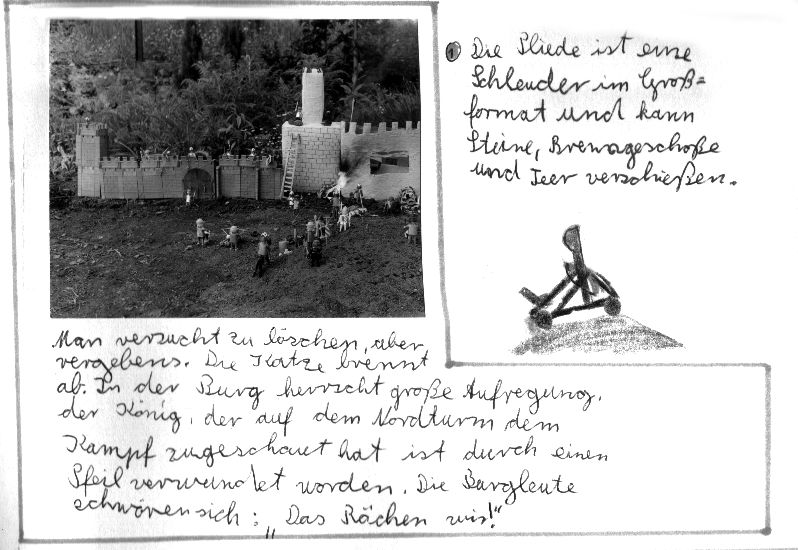 1 Die Pliede ist eine
Schleuder im Groß=
format und kann
Steine, Brenngeschoße
und Teer verschießen.
Man versucht zu löschen, aber
vergebens. Die Katze brennt
ab. In der Burg herrscht große Aufregung,
der König, der auf dem Nordturm dem
Kampf zugeschaut hat ist durch einen
Pfeil verwundet worden. Die Burgleute
schwören sich: „Das Rächen wir!"